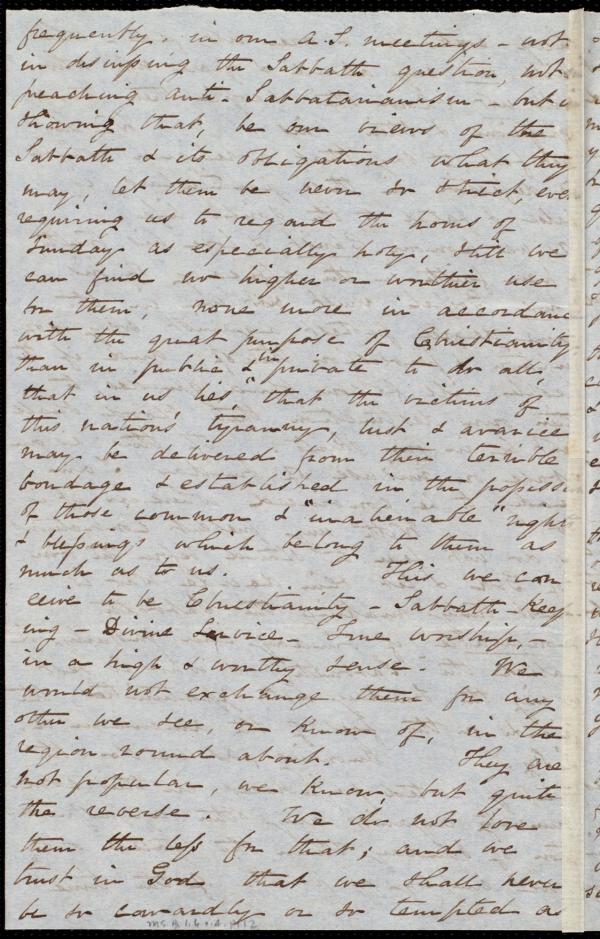 frequently, in our A.S. meetings - not
in discussing the Sabbath question, not
preaching anti-Sabbatarianism - but
showing that, be our views of the
Sabbath & its obligations what they
may, let them be never so strict, eve
requiring us to regard the hours of
Sunday as especially holy, still we
can find no higher or worthier use
for them, none more in accordanc
with the great purpose of Christianity
than in public & in private to do all,
that in us lies, that the victims of
this nation's tyranny, lust & avarice
may be delivered from their terrible
bondage & established in the possess
of those common & "inalienable" righ
& blessings which belong to them as
much as to us. This we con
ceive to be Christianity - Sabbath-Keep
ing - Divine Service - True worship, -
in a high & worthy sense. We
would not exchange them for any
other we see, or know of, in the
region round about. They are
not popular, we know, but quite
the reverse. We do not love
them the less for that; and we
trust in God that we shall never
be so cowardly or so tempted as